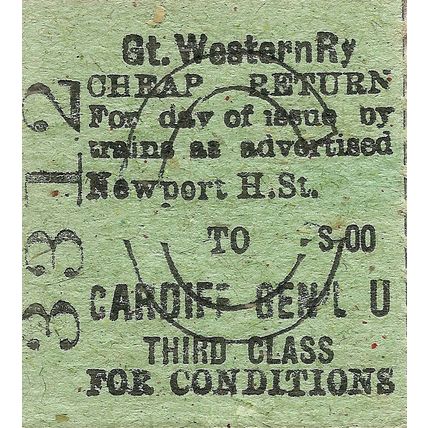 Gt. Western Ry
CHEAP RETURN
For day of issue by
trains as advertised
Newport H.St.
TO S.00
CARDIFF GEN'L U
THIRD CLASS
FOR CONDITIONS
3312
C